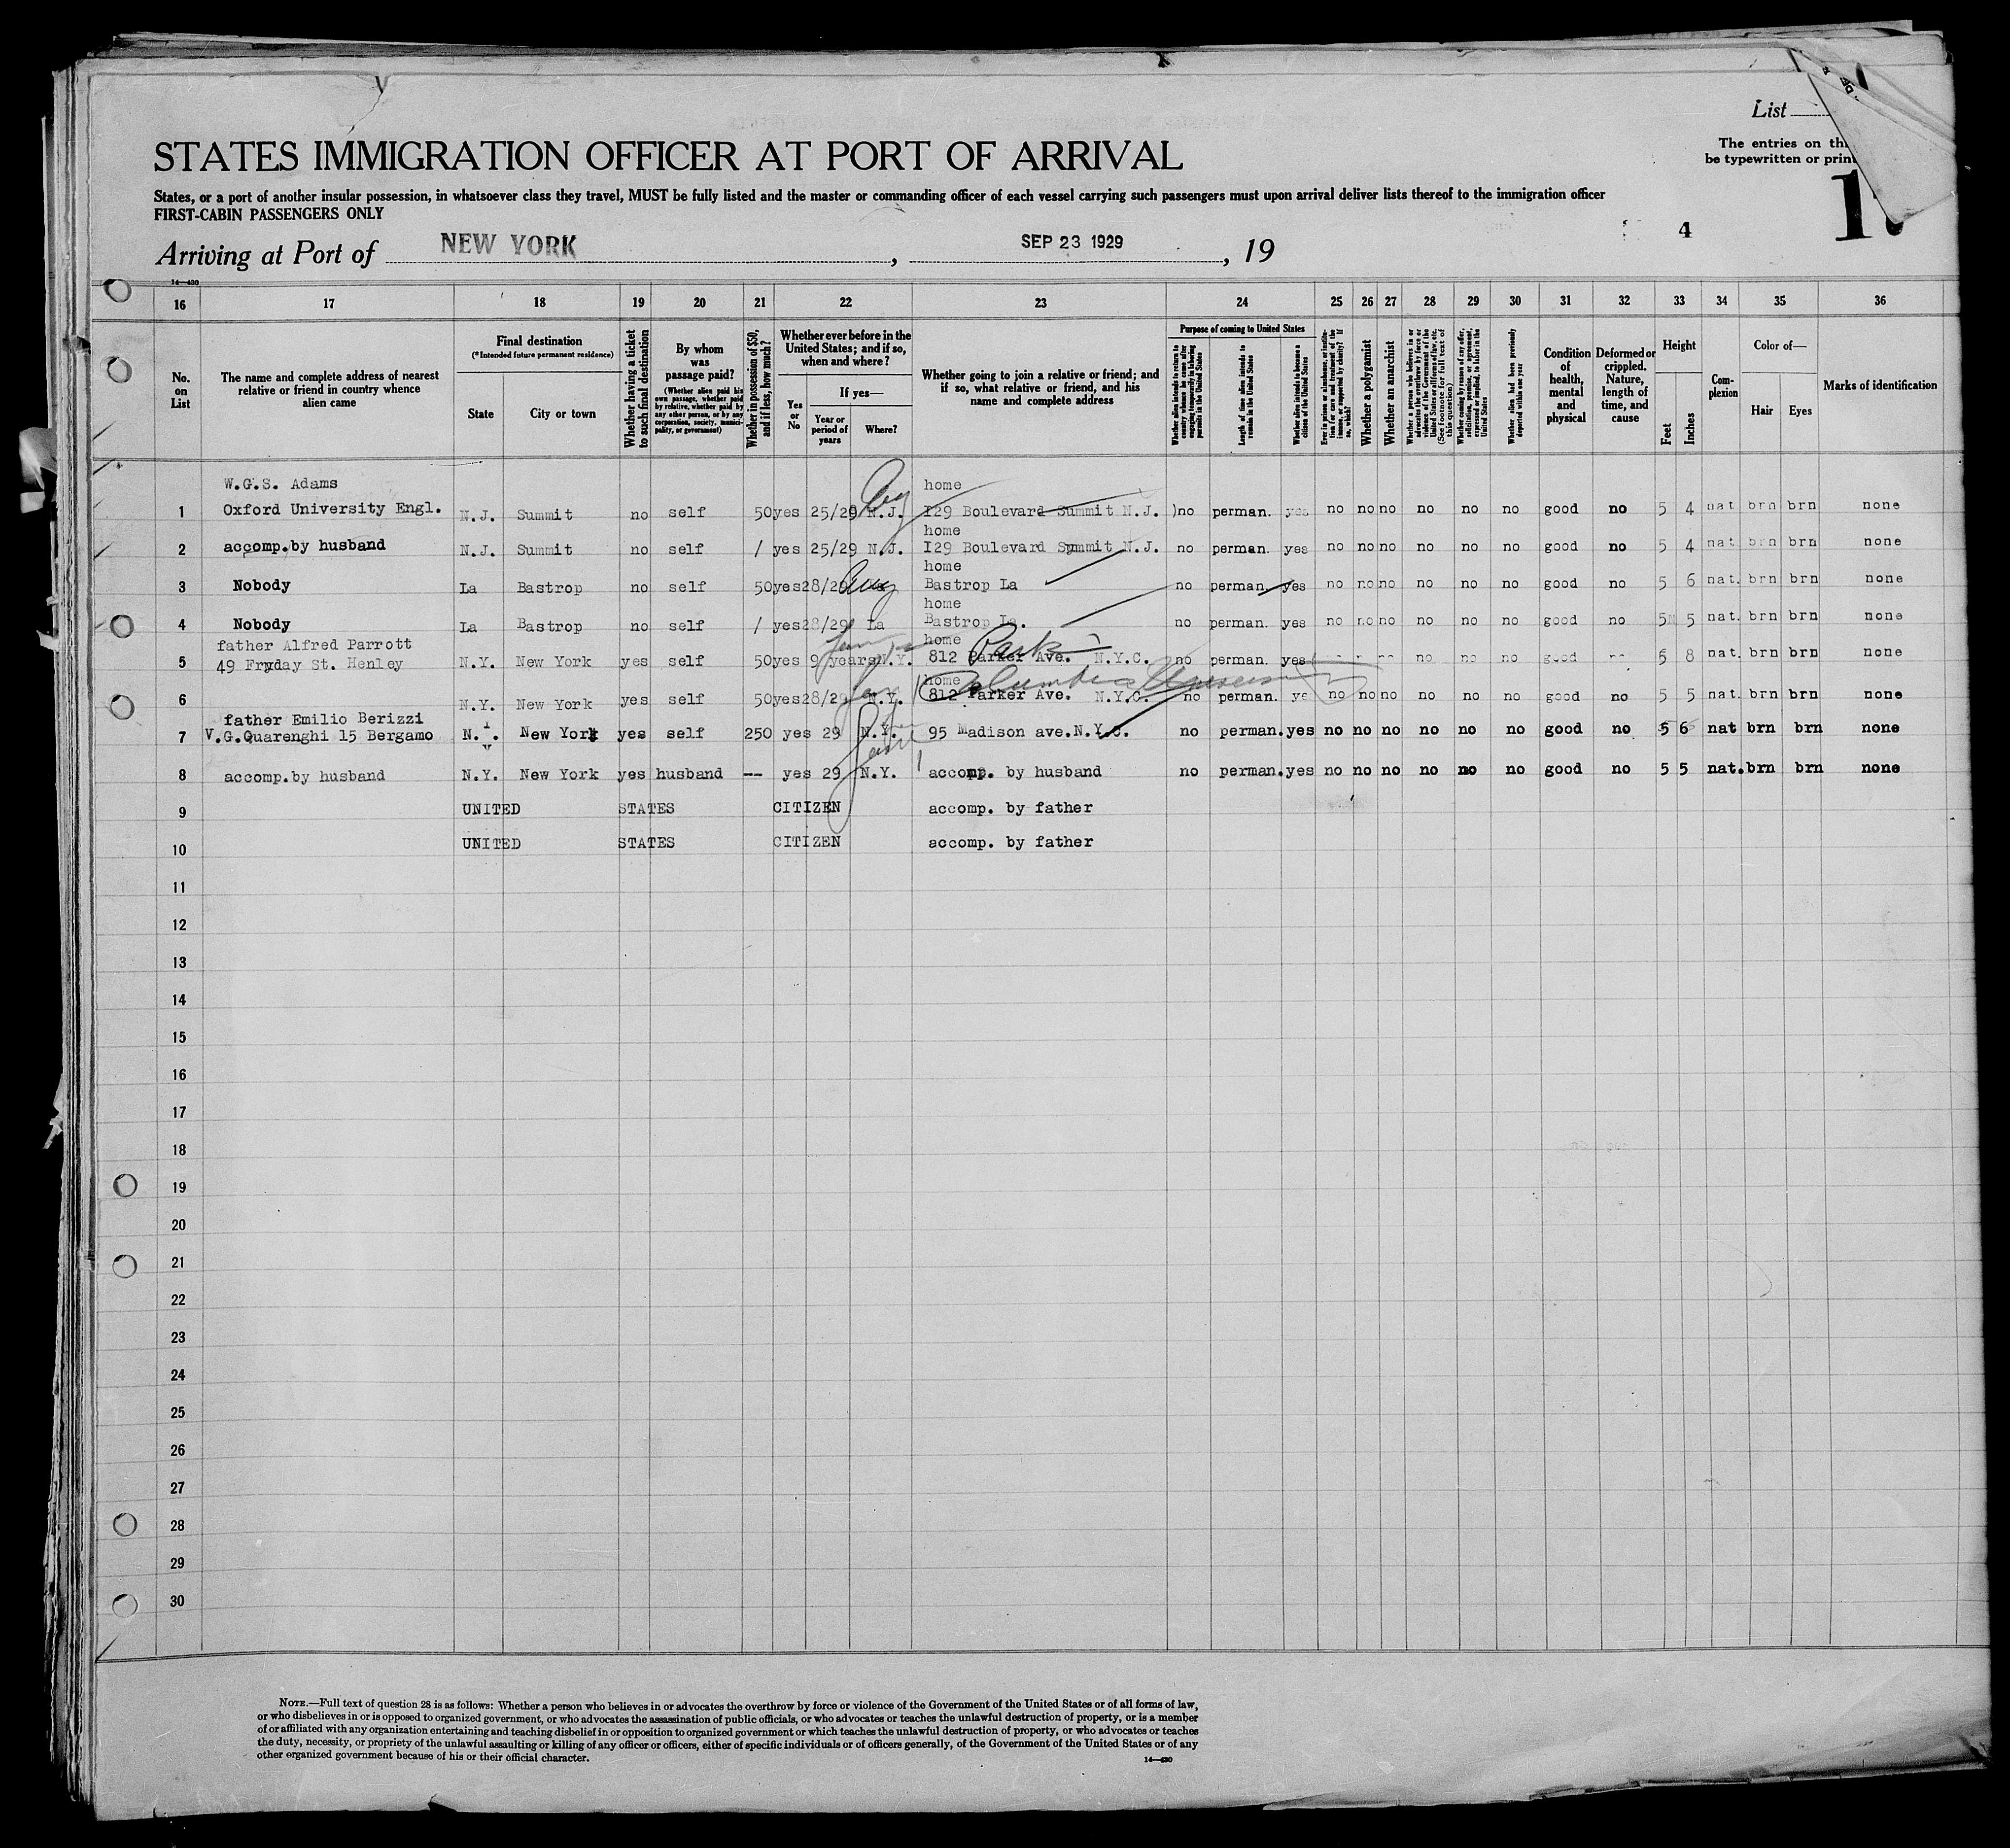 List
The entries on
be typewritten or
STATES IMMIGRATION OFFICER AT PORT OF ARRIVAL
States, or a port of another insular possession, in whatsoever class they travel, MUST be fully listed and the master or commanding officer of each vessel carrying such passengers must upon arrival deliver lists thereof to the immigration officer
FIRST-CABIN PASSENGERS ONLY
4
Arriving at Port of NEW YORK, SEP 23 1929, 19
14—430
16 17 18 19 20 21 22 23 24 25 26 27 28 29 30 31 32 33 34 35 36
No. on List
The name and complete address of nearest relative or friend in country whence alien came
Final destination
(*Intended future permanent residence)
State
City or town
Whether having a ticket to such final destination
By whom was passage paid?
(Whether alien paid his own passage, whether paid by relative, whether paid by any other person, or by any corporation, society, municipality, or government)
Whether in possession of $50, and if less, how much?
Whether ever before in the United States; and if so, when and where?
Yes or No
If yes—
Year or period of years
Where?
Whether going to join a relative or friend; and if so, what relative or friend, and his name and complete address
Purpose of coming to United States
Whether alien intends to return to country whence he came after engaging temporarily in laboring pursuits in the United States
Length of time alien intends to remain in the United States
Whether alien intends to become a citizen of the United States
Ever in prison or almshouse, or institution for care and treatment of the insane, or supported by charity? If so, which?
Whether a polygamist
Whether an anarchist
Whether a person who believes in or advocates the overthrow by force or violence of the Government of the United States or all forms of law, etc. (See footnote for full text of this question)
Whether coming by reason of any offer, solicitation, promise, or agreement, expressed or implied, to labor in the United States
Whether alien had been previously deported within one year
Condition of health, mental and physical
Deformed or crippled. Nature, length of time, and cause
Height
Feet
Inches
Complexion
Color of—
Hair
Eyes
Marks of identification
W.G.S. Adams home
1 Oxford University Engl. N.J. Summit no self 50 yes 25/29 N.J. 129 Boulevard Summit N.J. no perman. yes no no no no no no good no 5 4 nat brn brn none
home
2 accomp. by husband N.J. Summit no self / yes 25/29 N.J. 129 Boulevard Summit N.J. no perman. yes no no no no no no good no 5 4 nat. brn brn none
home
3 Nobody La Bastrop no self 50 yes Bastrop La no perman. yes no no no no no no good no 5 6 nat. brn brn none
home
4 Nobody La Bastrop no self / yes 28/29 La Bastrop La. no perman. yes no no no no no no good no 5 5 nat. brn brn none
father Alfred Parrott home Park
5 49 Fryday St. Henley N.Y. New York yes self 50 yes 9 years N.Y. 812 Parker Ave. N.Y.C. no perman. yes no no no good 5 8 nat. brn brn none
home Columbia
6 N.Y. New York yes self 50 yes N.Y. 812 Parker Ave. N.Y.C. no perman. no no no no no no good no 5 5 nat. brn brn none
father Emilio Berizzi
7 V.G.Quarenghi 15 Bergamo New York yes self 250 yes 29 N.Y. 95 Madison ave.N.Y.C. no perman. yes no no no no no no good no 5 6 nat brn brn none
8 accomp.by husband N.Y. New York yes husband -- yes 29 N.Y. accomp. by husband no perman. yes no no no no no no good no 5 5 nat. brn brn none
9 UNITED STATES CITIZEN accomp. by father
10 UNITED STATES CITIZEN accomp. by father
11
12
13
14
15
16
17
18
19
20
21
22
23
24
25
26
27
28
29
30
NOTE.—Full text of question 28 is as follows: Whether a person who believes in or advocates the overthrow by force or violence of the Government of the United States or of all forms of law,
or who disbelieves in or is opposed to organized government, or who advocates the assassination of public officials, or who advocates or teaches the unlawful destruction of property, or is a member
of or affiliated with any organization entertaining and teaching disbelief in or opposition to organized government or which teaches the unlawful destruction of property, or who advocates or teaches
the duty, necessity, or propriety of the unlawful assaulting or killing of any officer or officers, either of specific individuals or of officers generally, of the Government of the United States or of any
other organized government because of his or their official character.
14—430